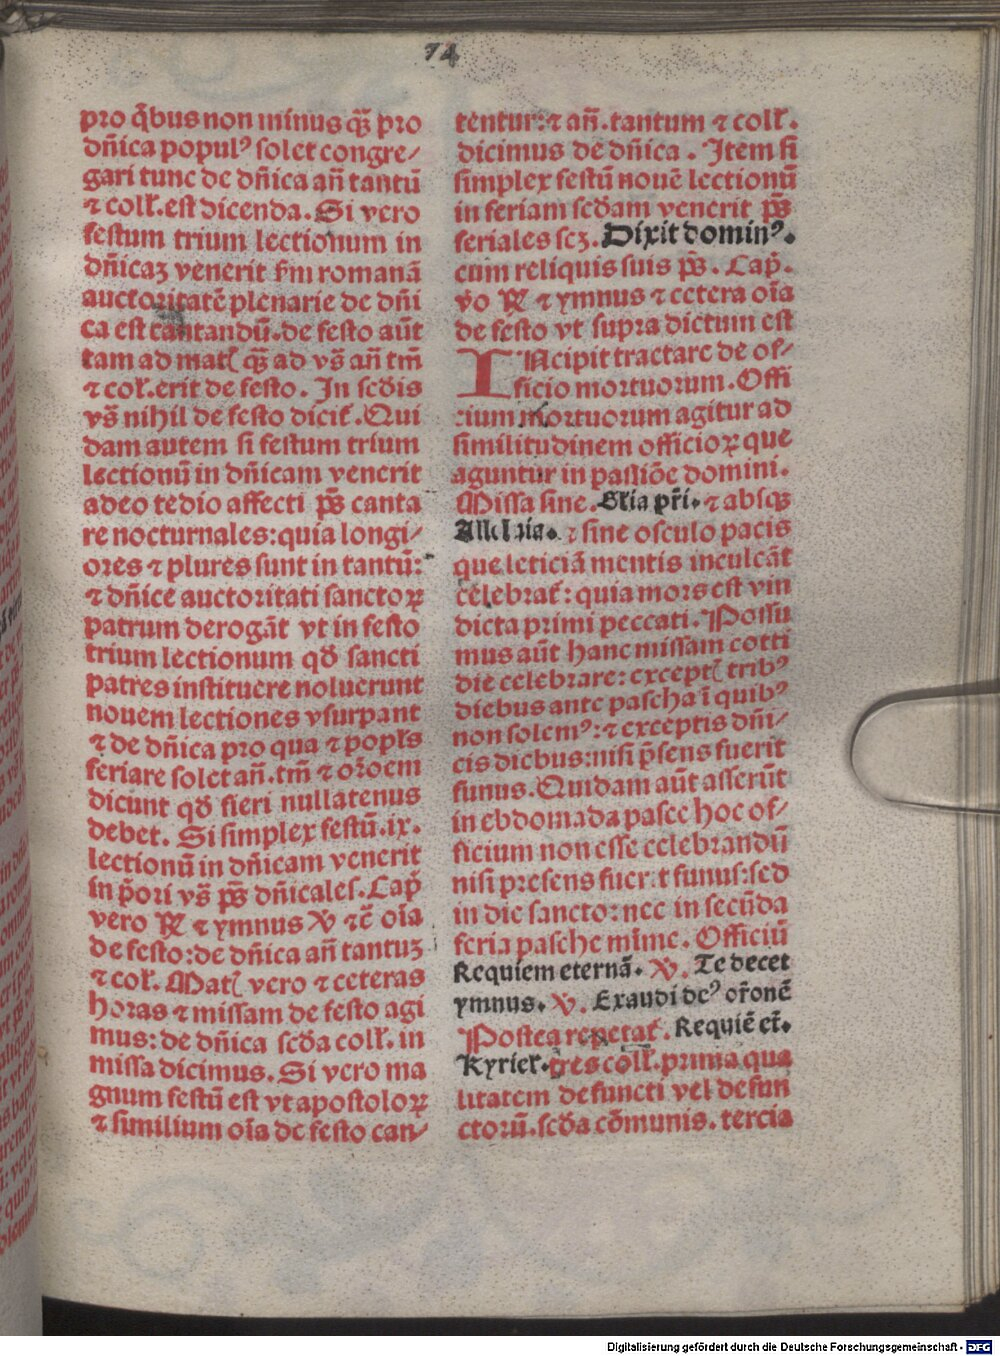 74
pro q̄bus non minus q̄ꝫ pro
dn̄ica popul⁹ solet congre⸗
gari tunc de dn̄ica an̄ tantū
⁊ coll̄.est dicenda. Si vero
festum trium lectionum in
dn̄icaꝫ venerit s̄m romanā
auctoritatē plenarie de dn̄i
ca est cantandū.de festo aūt
tam ad mat̄ q̄ꝫ ad vs̄ an̄ tm̄
⁊ col̄l.erit de festo. In scd̄is
vs̄ nihil de festo dicit̄. Qui
dam autem si festum trium
lectionū in dn̄icam venerit
adeo tedio affecti ps̄ canta
re nocturnales: quia longi⸗
ores ⁊ plures sunt in tantū:
⁊ dn̄ice auctoritati sanctoꝝ
patrum derogāt vt in festo
trium lectionum qd̄ sancti
patres instituere noluerunt
nouem lectiones vsurpant
⁊ de dn̄ica pro qua ⁊ popl̄s
feriare solet an̄.tm̄ ⁊ or̄oem
dicunt qd̄ fieri nullatenus
debet. Si simplex festū.ix.
lectionū in dn̄icam venerit
in p̄ori vs̄ ps̄ dn̄icales. Cap̄
vero ℟ ⁊ ymnus ℣ ⁊c̄ oīa
de festo: de dn̄ica an̄ tantuꝫ
⁊ col̄l. Mat̄ vero ⁊ ceteras
horas ⁊ missam de festo agi
mus: de dn̄ica scd̄a coll̄. in
missa dicimus. Si vero ma
gnum festū est vt apostoloꝝ
⁊ similium oīa de festo can⸗
tentur: ⁊ an̄.tantum ⁊ coll̄.
dicimus de dn̄ica. Item si
simplex festū nouē lectionū
in feriam scd̄am venerit ps̄
feriales scꝫ. Dixit domin⁹.
cum reliquis suis ps̄. Cap̄.
v̄o ℟ ⁊ ymnus ⁊ cetera oīa
de festo vt supra dictum est
INcipit tractare de of⸗
ficio mortuorum. Offi
cium mortuorum agitur ad
similitudinem officioꝝ que
aguntur in passiōe domini.
Missa sine. Gl̄ia pr̄i. ⁊ absqꝫ
Alleluia. ⁊ sine osculo pacis
que leticiā mentis inculcāt
celebrat̄: quia mors est vin
dicta primi peccati. Possu
mus aūt hanc missam cotti
die celebrare: except̄ trib⁹
diebus ante pascha ī quib⁹
non solem⁹: ⁊ exceptis dn̄i⸗
cis diebus: nisi p̄sens fuerit
funus. Quidam aūt asserūt
in ebdomada pasce hoc of⸗
ficium non esse celebrandū
nisi presens fuerit funus: sed
in die sancto: nec in secūda
feria pasche mīme. Officiū
Requiem eternā. ℣. Te decet
ymnus. ℣. Exaudi de⁹ or̄onē
Postea repetat̄. Requiē et̄.
Kyriel̄. tres coll̄. prima qua
litatem defuncti vel defun
ctorū. scd̄a cōmunis. tercia
Digitalisierung gefördert durch die Deutsche Forschungsgemeinschaft - DFG